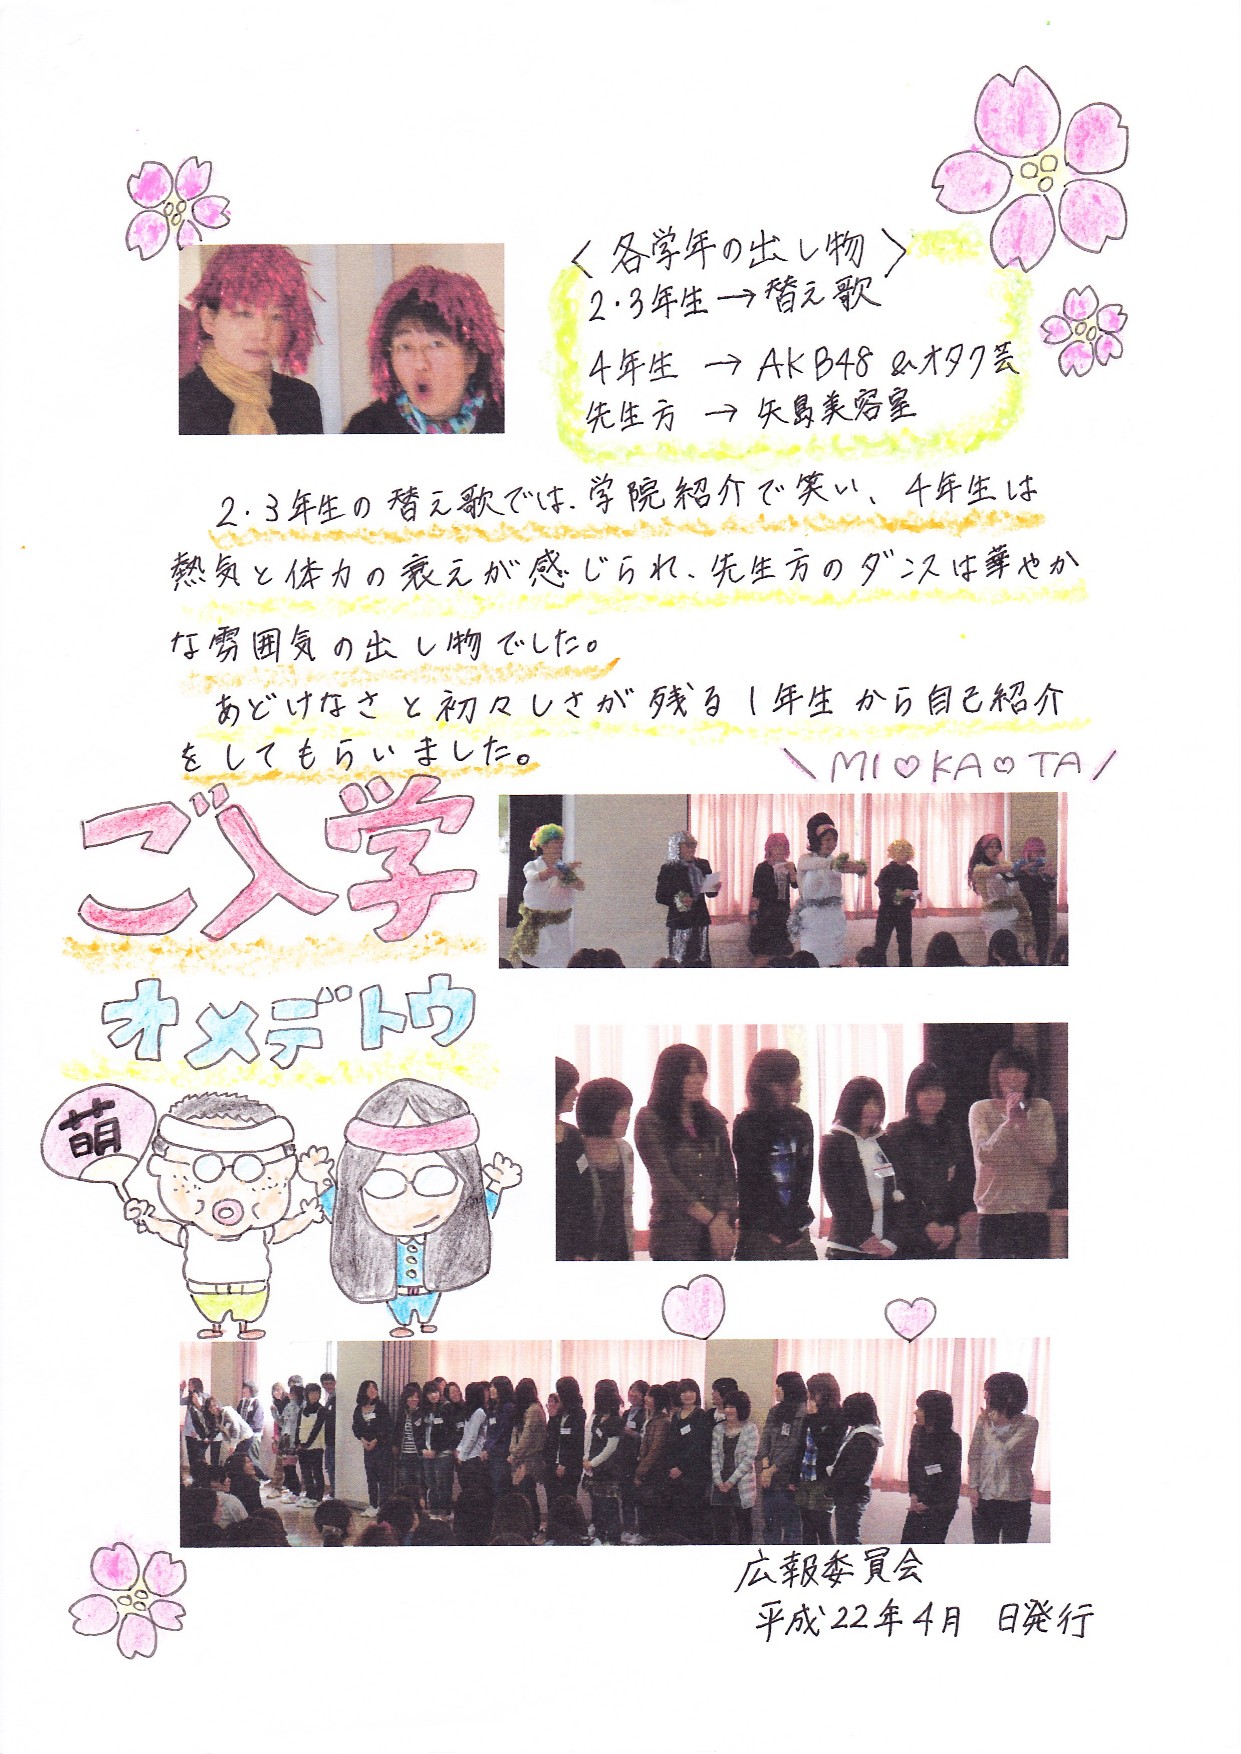 〈各学年の出し物〉
2・3年生→替え歌
4年生 → AKB48 &オタク芸
先生方 → 矢島美容室
2・3年生の替え歌では、学院紹介で笑い、4年生は
熱気と体力の衰えが感じられ、先生方のダンスは華やか
な雰囲気の出し物でした。
あどけなさと初々しさが残る1年生から自己紹介
をしてもらいました。
\MI♡KA♡TA/
ご入学
オメデトウ
萌
広報委員会
平成22年4月 日発行